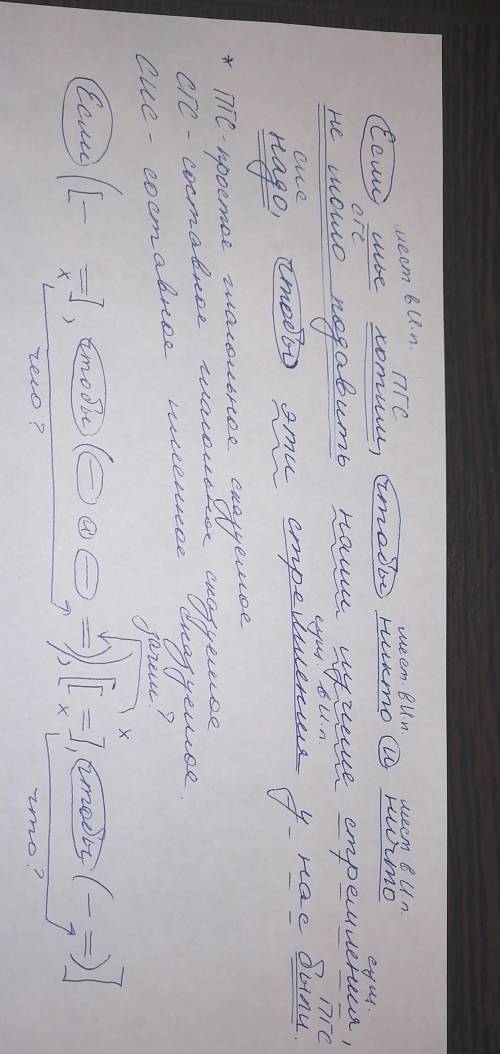 мест в И.п. ПГС мест в И.п. мест в И.п.
Если мы хотим, чтобы никто и ничто
СГС сущ.
не могло подавить наши лучшие стремления,
СИС сущ. в И.п. ПГС
надо, чтобы эти стремления у нас были.
* ПГС - простое глагольное сказуемое
СГС - составное глагольное сказуемое
СИС - составное именное сказуемое.
зачем?
Если ([- =], чтобы (- и - =), [=], чтобы (- =)]
x x x
чего? что?